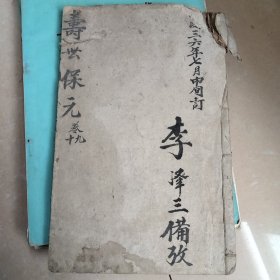 三六年七月中旬訂
李泽三備攷
壽世保元
卷九十